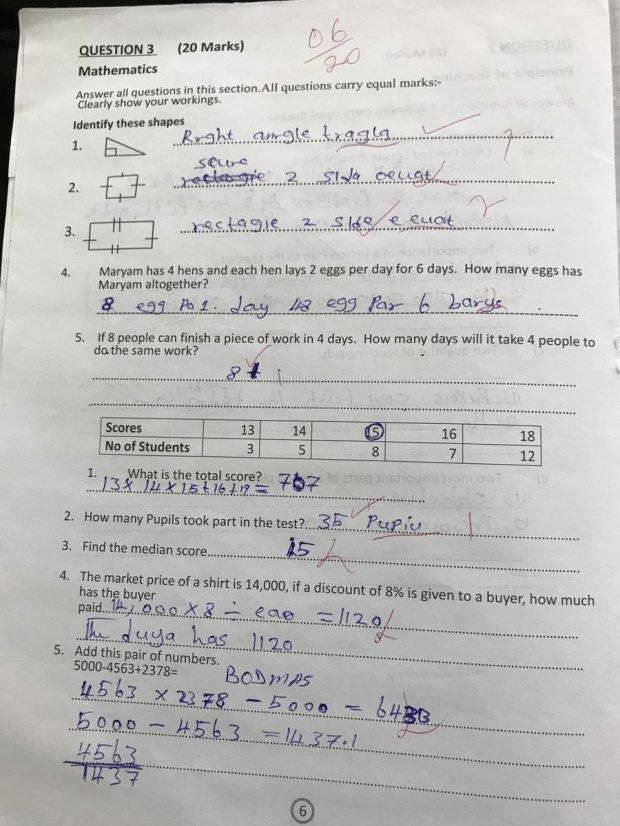 06
20
QUESTION 3 (20 Marks)
Mathematics
Answer all questions in this section.All questions carry equal marks:-
Clearly show your workings.
Identify these shapes
1. Rrght angle tragla
scure
2. rectagie 2 Sida oeuat
3. rectagie 2 side e euait
4. Maryam has 4 hens and each hen lays 2 eggs per day for 6 days. How many eggs has
Maryam altogether?
8 egg Pa 1. day 48 egg Par 6 barys
5. If 8 people can finish a piece of work in 4 days. How many days will it take 4 people to
do the same work?
8
Scores 13 14 15 16 18
No of Students 3 5 8 7 12
1. What is the total score?
13 x 14 x 15 + 16 + 19 = 767
2. How many Pupils took part in the test? 35 Pupiu
3. Find the median score 15
4. The market price of a shirt is 14,000, if a discount of 8% is given to a buyer, how much
has the buyer
paid 14,000 x 8 ÷ eao = 1120
The duya has 1120
5. Add this pair of numbers.
5000-4563+2378= BODMAS
4563 x 2378 - 5000 = 6433
5000 - 4563 = 1437.1
4563
1437
6